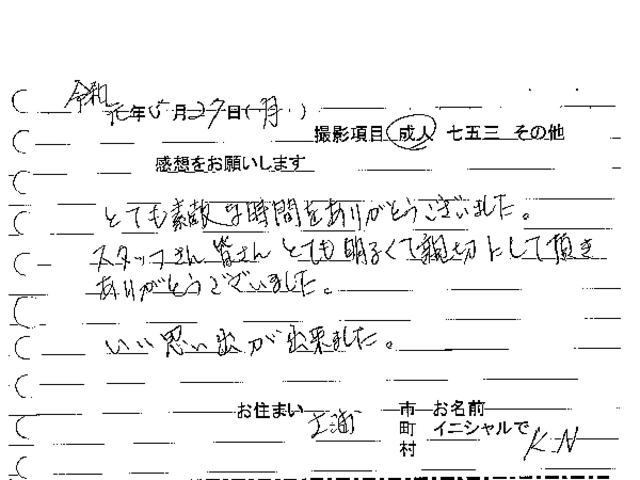 令和元年5月27日(月)
撮影項目 成人 七五三 その他
感想をお願いします
とても素敵な時間をありがとうございました。
スタッフさん皆さんとても明るくて親切にして頂き
ありがとうございました。
いい思い出が出来ました。
お住まい 土浦 市 町 村 お名前 イニシャルで K.N